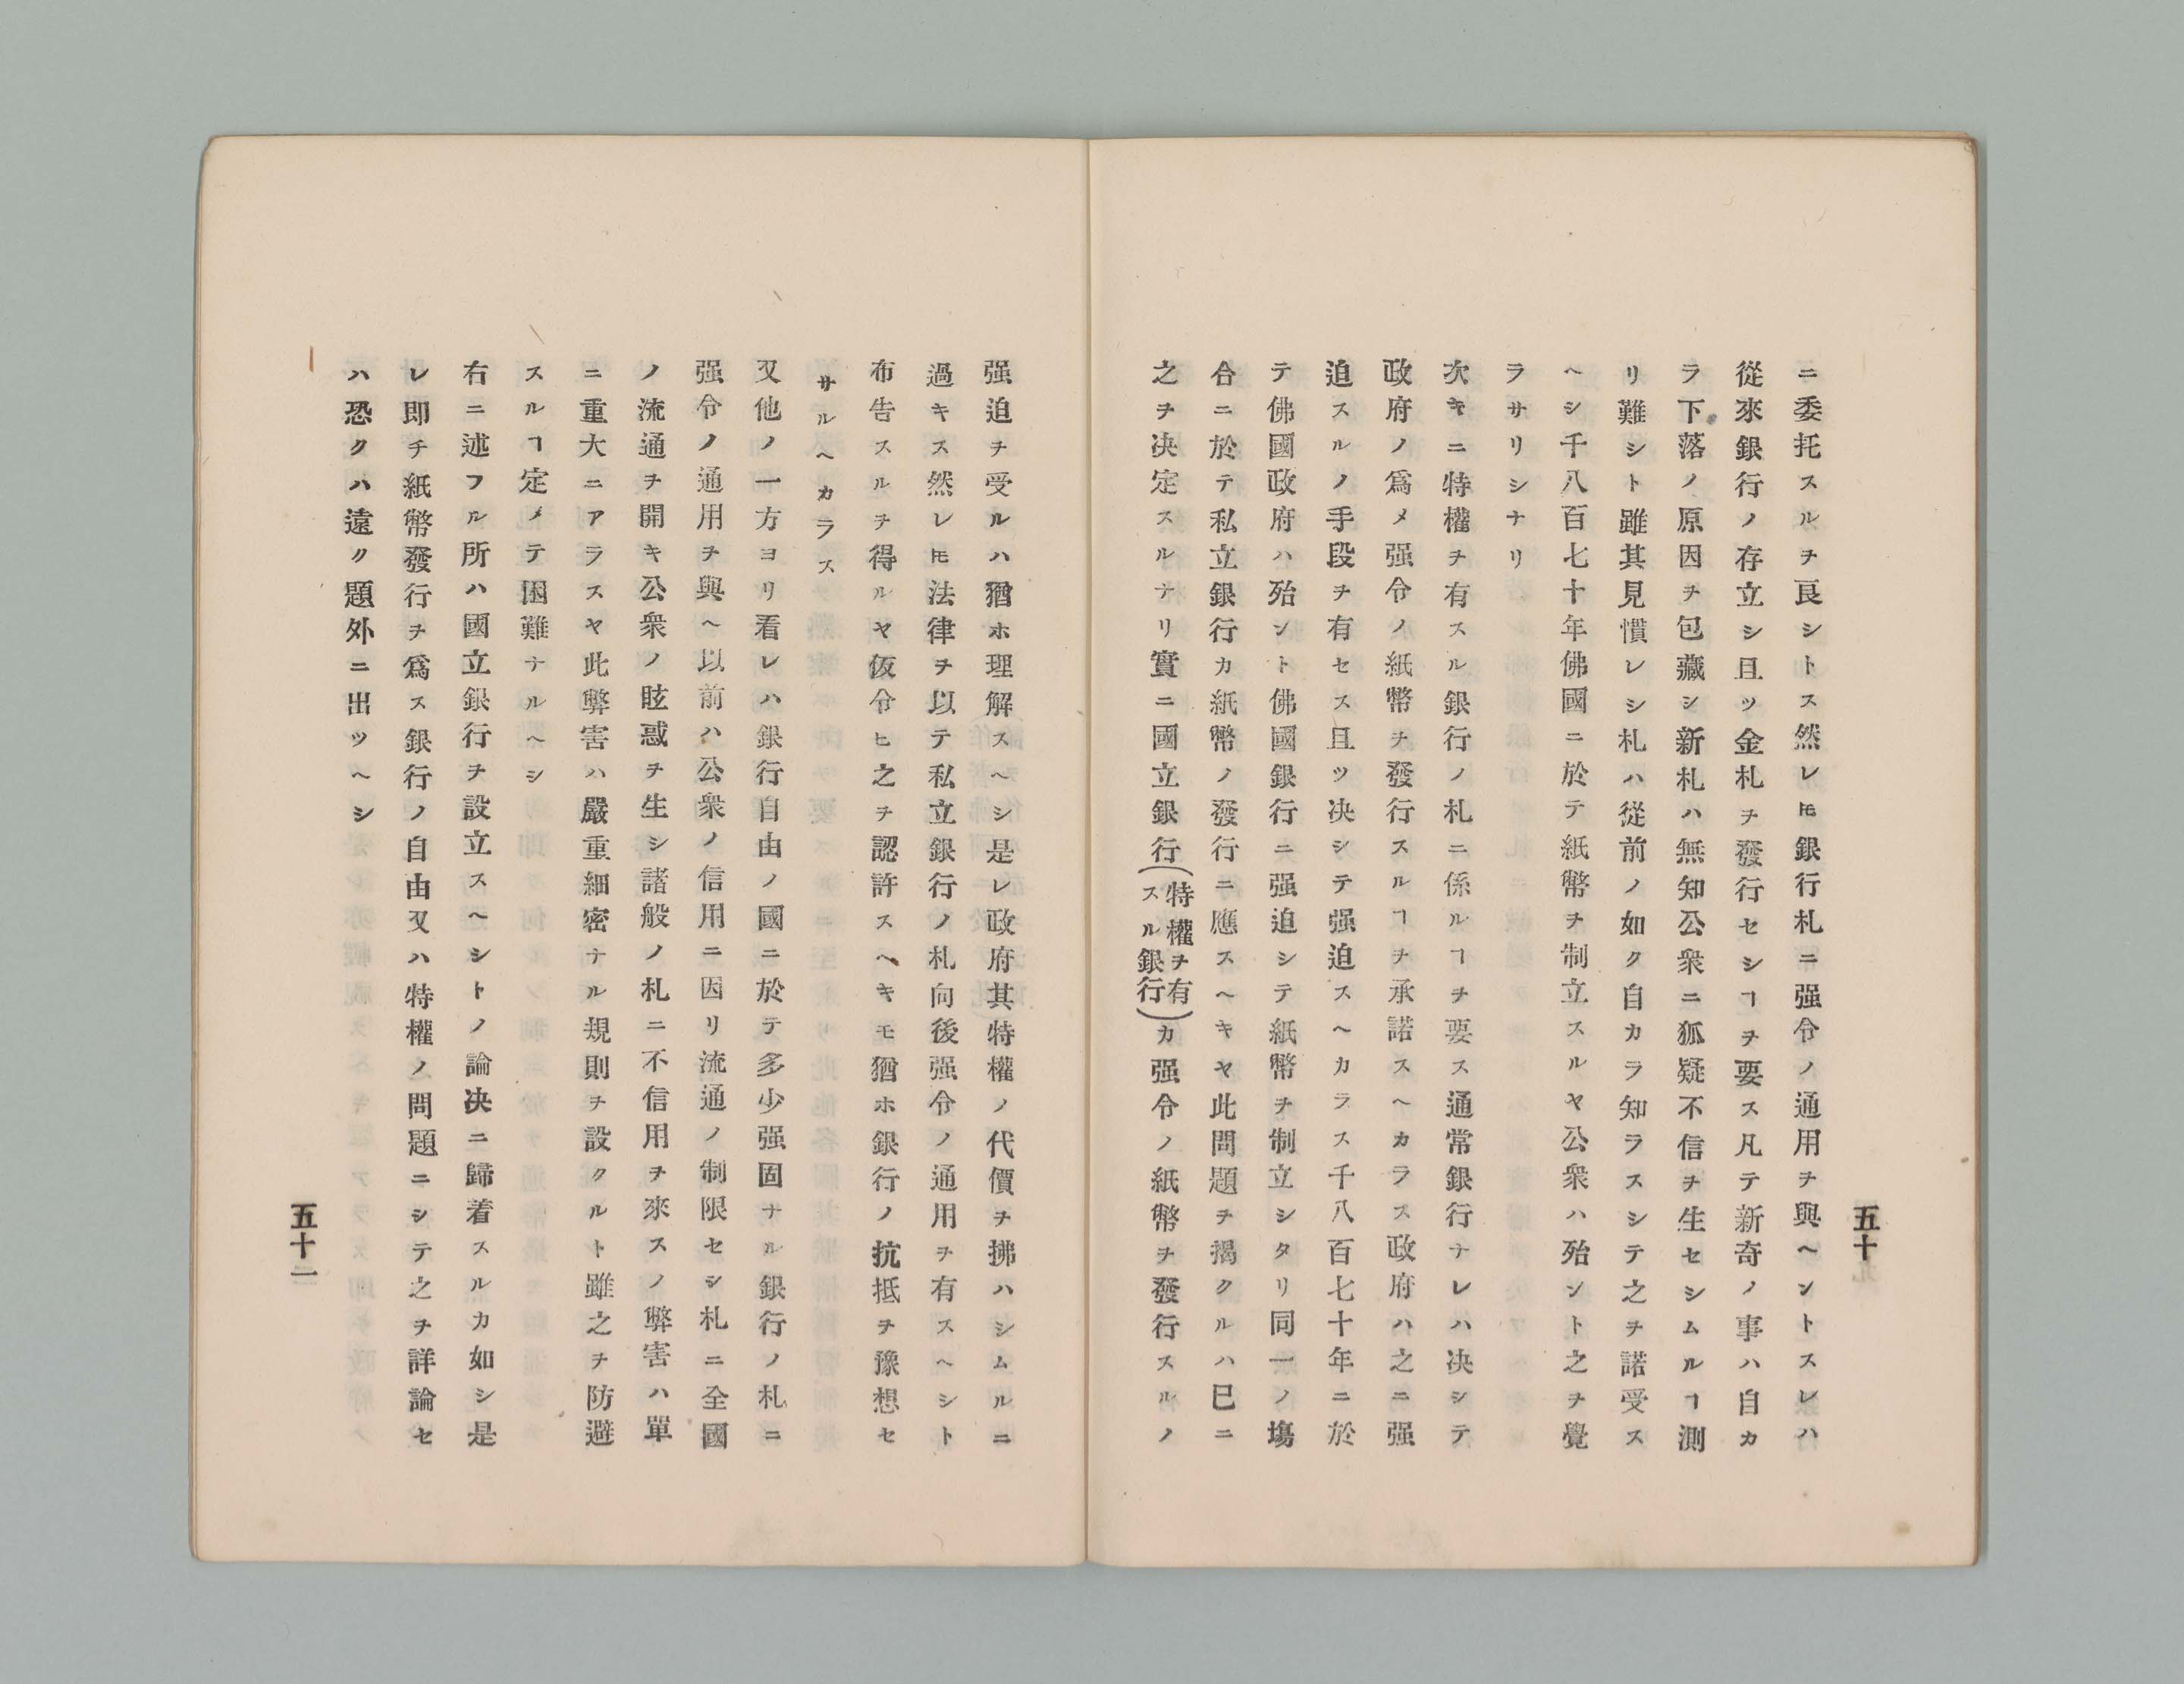 五十
ニ委托スルヲ良シトス然レ𪜈銀行札ニ强令ノ通用ヲ與ヘントスレハ
從來銀行ノ存立シ且ツ金札ヲ發行セシヿヲ要ス凡テ新奇ノ事ハ自カ
ラ下落ノ原因ヲ包藏シ新札ハ無知公衆ニ狐疑不信ヲ生セシムルヿ測
リ難シト雖其見慣レシ札ハ從前ノ如ク自カラ知ラスシテ之ヲ諾受ス
ヘシ千八百七十年佛國ニ於テ紙幣ヲ制立スルヤ公衆ハ殆ント之ヲ覺
ラサリシナリ
次キニ特權ヲ有スル銀行ノ札ニ係ルヿヲ要ス通常銀行ナレハ决シテ
政府ノ爲メ强令ノ紙幣ヲ發行スルヿヲ承諾スヘカラス政府ハ之ニ强
迫スルノ手段ヲ有セス且ツ决シテ强迫スヘカラス千八百七十年ニ於
テ佛國政府ハ殆ント佛國銀行ニ强迫シテ紙幣ヲ制立シタリ同一ノ塲
合ニ於テ私立銀行カ紙幣ノ發行ニ應スヘキヤ此問題ヲ揭クルハ已ニ
之ヲ决定スルナリ實ニ國立銀行(特權ヲ有スル銀行)カ强令ノ紙幣ヲ發行スルノ
强迫ヲ受ルハ猶ホ理解スヘシ是レ政府其特權ノ代價ヲ拂ハシムルニ
過キス然レ𪜈法律ヲ以テ私立銀行ノ札向後强令ノ通用ヲ有スヘシト
布告スルヲ得ルヤ仮令ヒ之ヲ認許スヘキモ猶ホ銀行ノ抗抵ヲ豫想セ
サルヘカラス
又他ノ一方ヨリ看レハ銀行自由ノ國ニ於テ多少强固ナル銀行ノ札ニ
强令ノ通用ヲ與ヘ以前ハ公衆ノ信用ニ因リ流通ノ制限セシ札ニ全國
ノ流通ヲ開キ公衆ノ眩惑ヲ生シ諸般ノ札ニ不信用ヲ來スノ弊害ハ單
ニ重大ニアラスヤ此弊害ハ嚴重細密ナル規則ヲ設クルト雖之ヲ防避
スルヿ定メテ困難ナルヘシ
右ニ述フル所ハ國立銀行ヲ設立スヘシトノ論决ニ歸着スルカ如シ是
レ即チ紙幣發行ヲ爲ス銀行ノ自由又ハ特權ノ問題ニシテ之ヲ詳論セ
ハ恐クハ遠ク題外ニ出ツヘシ
五十一